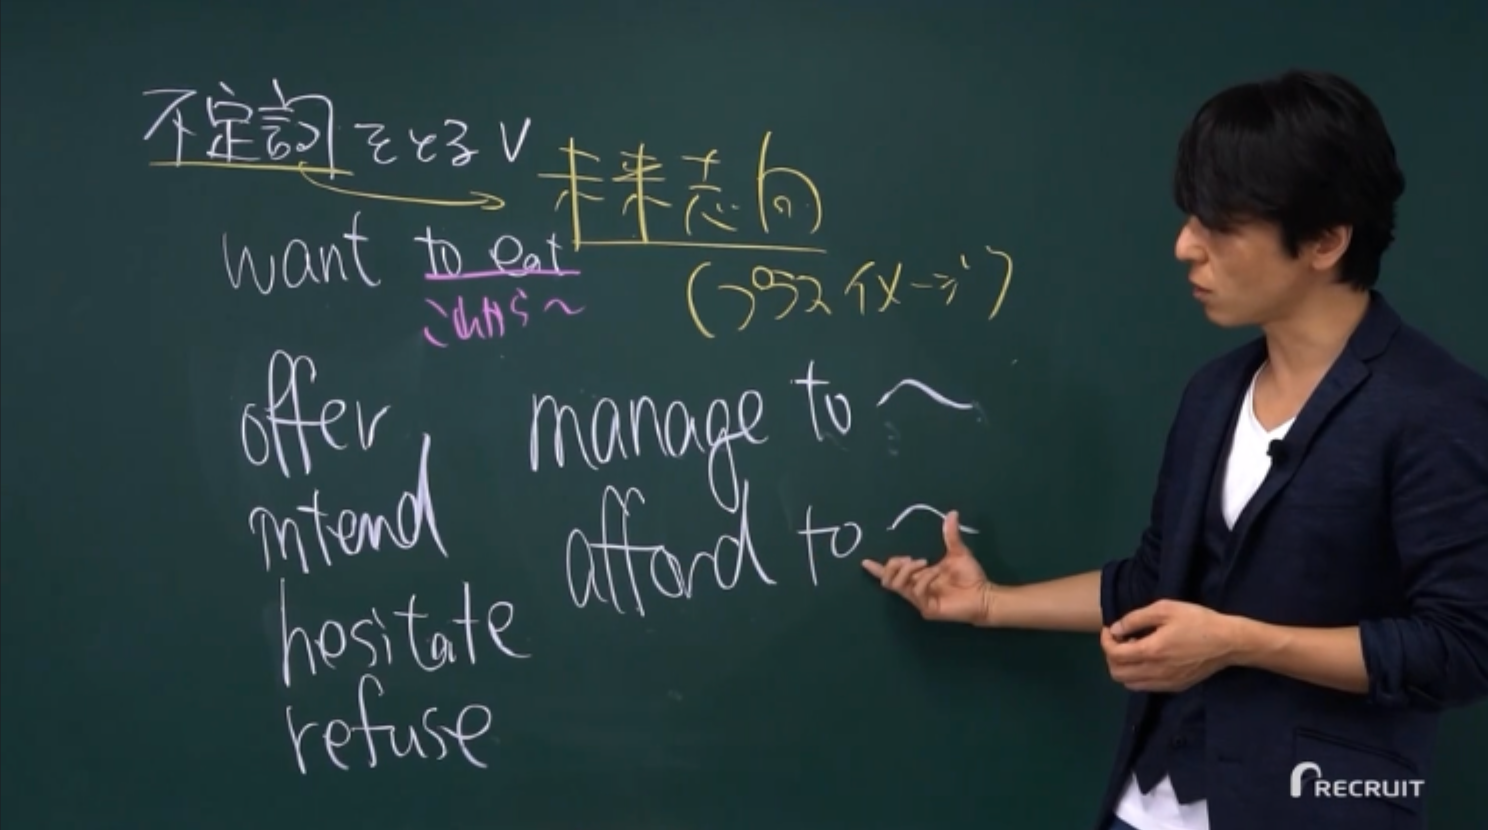 不定詞をとるV
未来志向
want to eat
これから〜
(プラスイメージ)
offer
intend
hesitate
refuse
manage to 〜
afford to 〜
RECRUIT